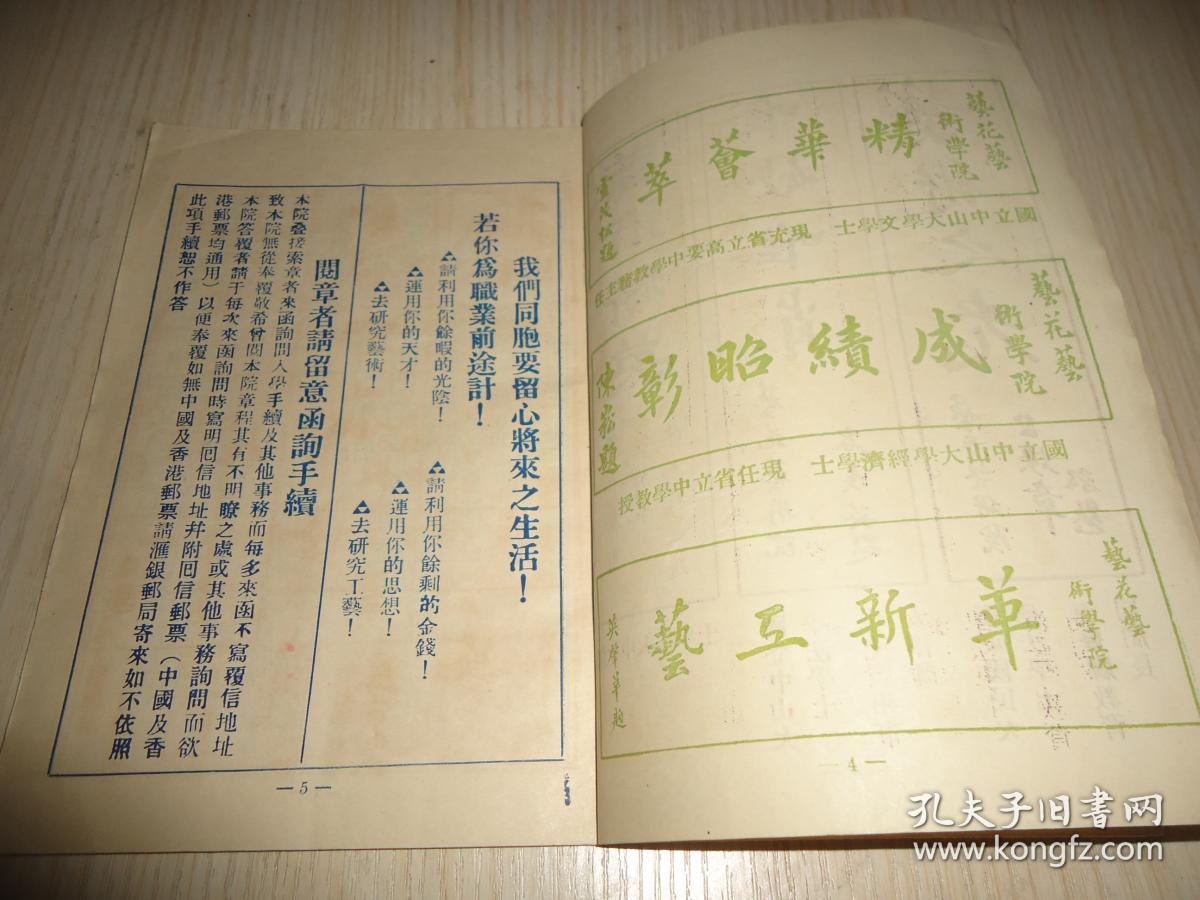 藝花藝
術學院
精華薈萃
國立中山大學文學士　現充省立高要中學教務主任
藝花藝
術學院
成績昭彰
國立中山大學經濟學士　現任省立中學教授
藝花藝
術學院
革新工藝
— 4 —
我們同胞要留心將來之生活！
若你爲職業前途計！
請利用你餘暇的光陰！
運用你的天才！
去研究藝術！
請利用你餘剩的金錢！
運用你的思想！
去研究工藝！
閱章者請留意函詢手續
本院叠接索章者來函詢問入學手續及其他事務而每多來函不寫覆信地址
致本院無從奉覆敬希曾閱本院章程其有不明瞭之處或其他事務詢問而欲
本院答覆者請于每次來函詢問時寫明囘信地址幷附囘信郵票（中國及香
港郵票均通用）以便奉覆如無中國及香港郵票請滙銀郵局寄來如不依照
此項手續恕不作答
— 5 —
孔夫子旧书网
www.kongfz.com